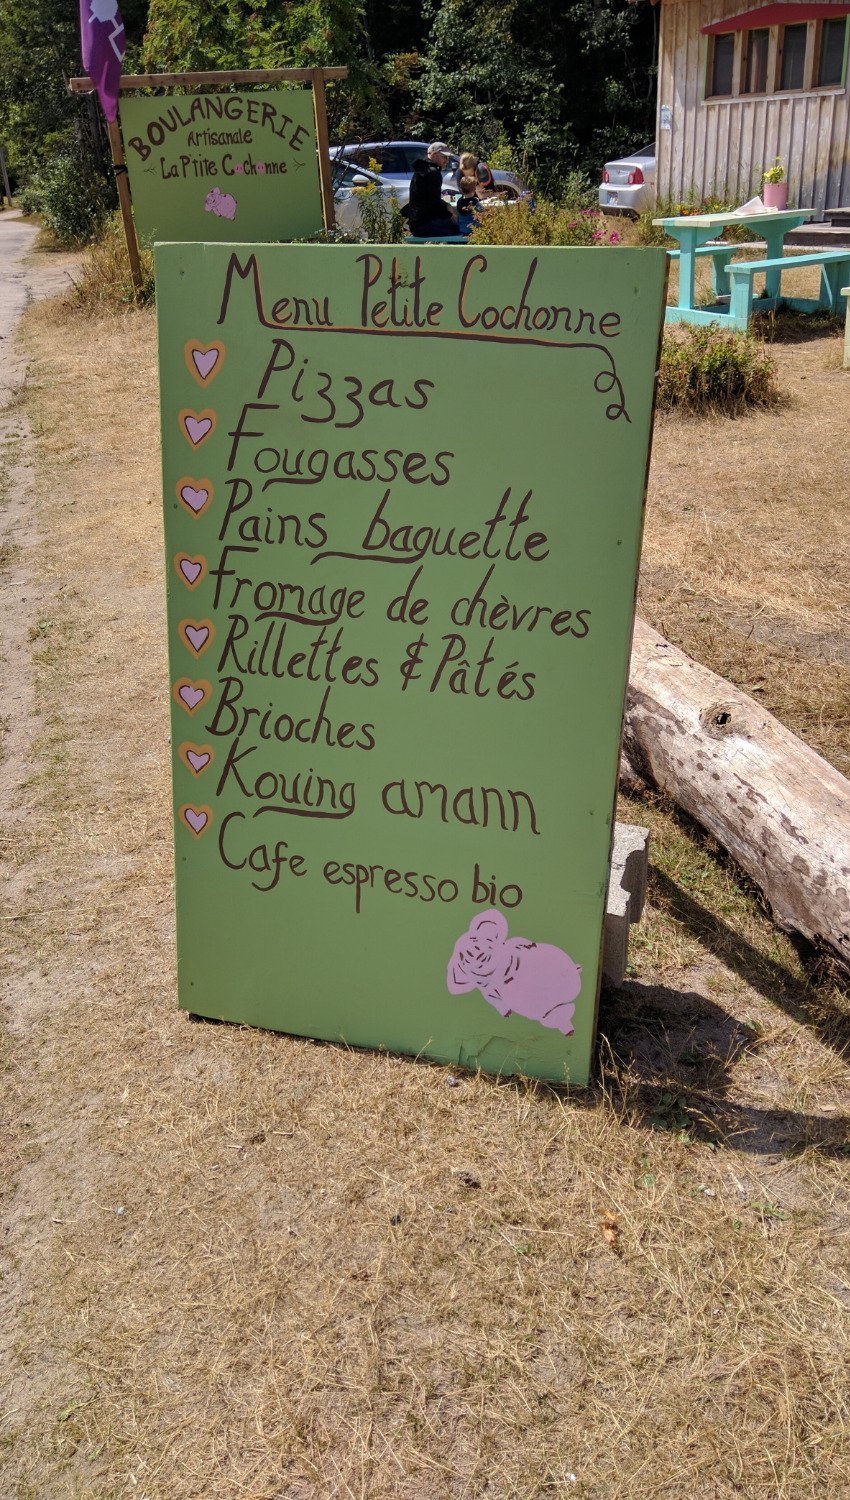 BOULANGERIE
Artisanale
La P'tite Cochonne
Menu Petite Cochonne
Pizzas
Fougasses
Pains baguette
Fromage de chèvres
Rillettes & Pâtés
Brioches
Kouing amann
Cafe espresso bio